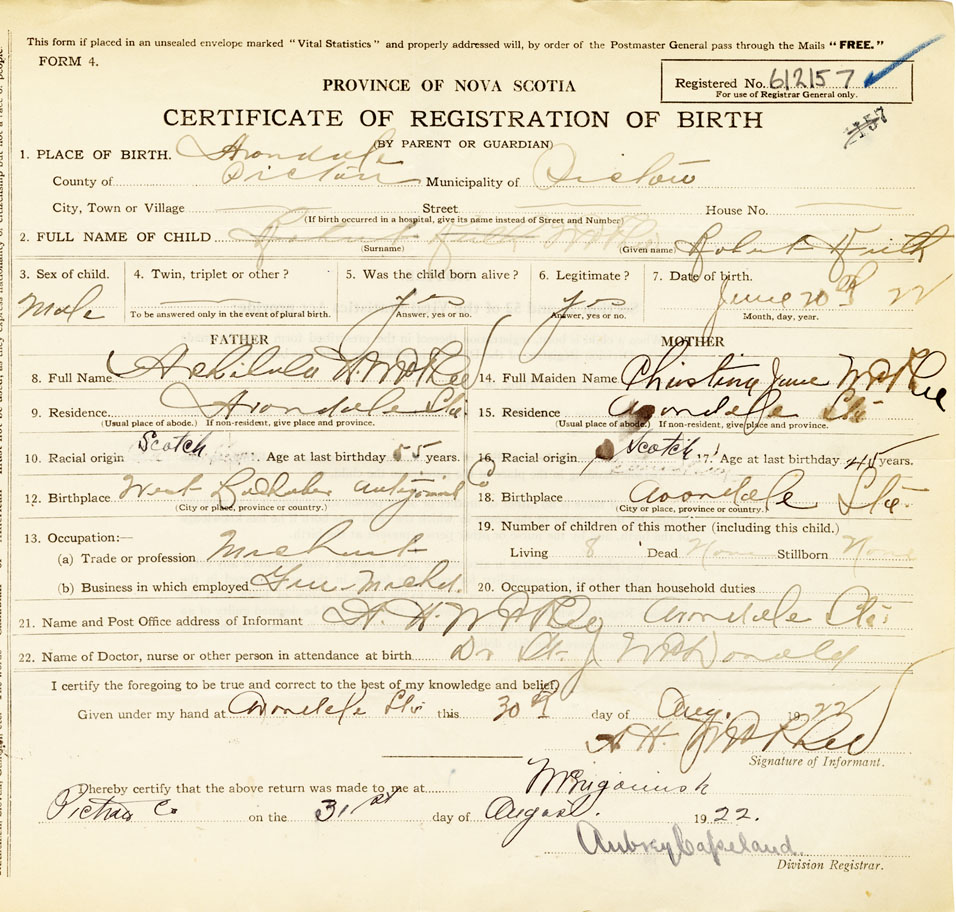 This form if placed in an unsealed envelope marked "Vital Statistics" and properly addressed will, by order of the Postmaster General pass through the Mails "FREE."
FORM 4.
PROVINCE OF NOVA SCOTIA
Registered No. 612157
For use of Registrar General only.
CERTIFICATE OF REGISTRATION OF BIRTH
157
(BY PARENT OR GUARDIAN)
1. PLACE OF BIRTH. Avondale
County of Pictou Municipality of Pictou
City, Town or Village Street House No.
(If birth occurred in a hospital, give its name instead of Street and Number)
2. FULL NAME OF CHILD Robert Keith McPhee Robert Keith
(Surname) (Given name)
3. Sex of child. 4. Twin, triplet or other? 5. Was the child born alive? 6. Legitimate? 7. Date of birth.
Male yes yes June 20th 22
To be answered only in the event of plural birth. Answer, yes or no. Answer, yes or no. Month, day, year.
FATHER MOTHER
8. Full Name H. McPhee 14. Full Maiden Name Christina Jane McPhee
9. Residence Avondale Sta 15. Residence Avondale Sta
(Usual place of abode.) If non-resident, give place and province. (Usual place of abode.) If non-resident, give place and province.
10. Racial origin Scotch Age at last birthday 55 years. 16. Racial origin Scotch 17. Age at last birthday 45 years.
12. Birthplace West Lochaber Antigonish Co 18. Birthplace Avondale Sta.
(City or place, province or country.) (City or place, province or country.)
13. Occupation:— 19. Number of children of this mother (including this child.)
(a) Trade or profession Merchant Living 8 Dead None Stillborn None
(b) Business in which employed 20. Occupation, if other than household duties
21. Name and Post Office address of Informant A. H. McPhee Avondale Sta
22. Name of Doctor, nurse or other person in attendance at birth Dr J McDonald
I certify the foregoing to be true and correct to the best of my knowledge and belief,
Given under my hand at Avondale Sta this 30th day of Aug. 1922
A. H. McPhee
Signature of Informant.
I hereby certify that the above return was made to me at Merigomish
Pictou Co on the 31st day of August 1922.
Aubrey Copeland.
Division Registrar.